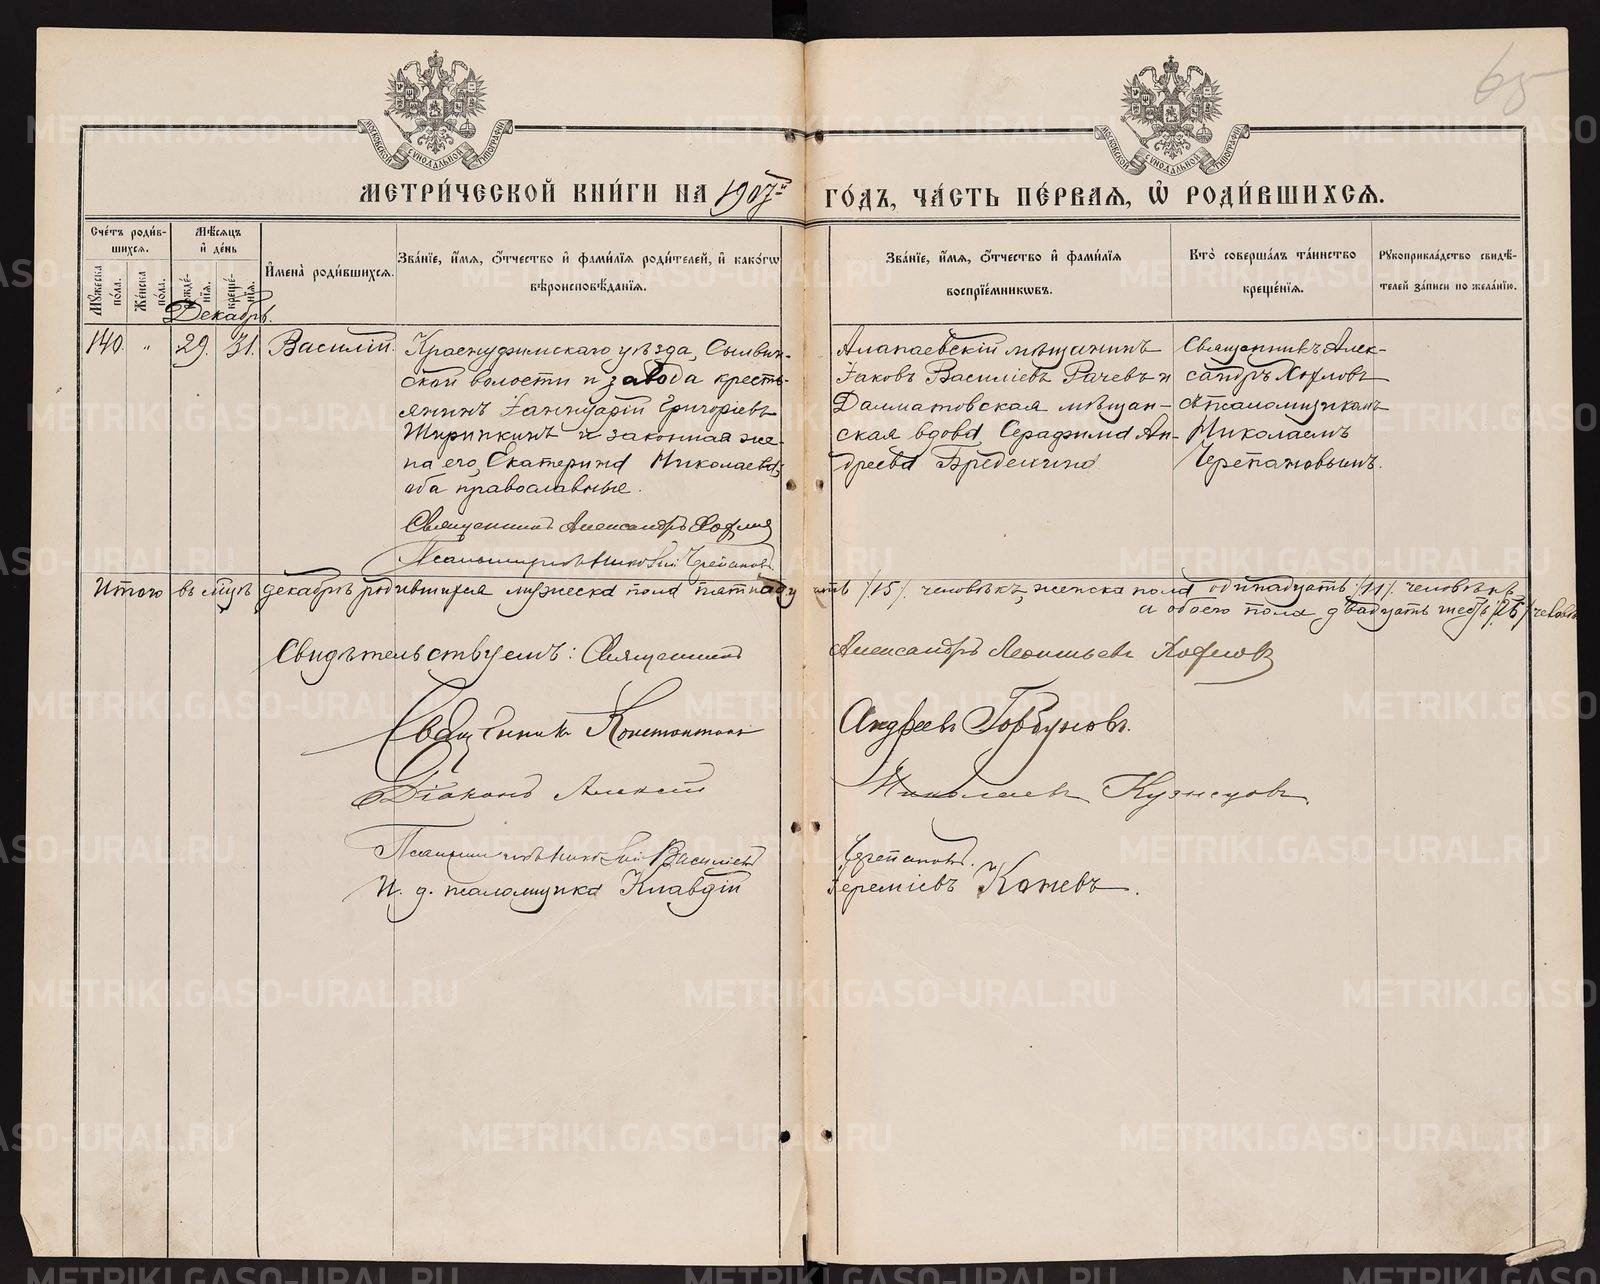 65
МОСКОВСКОЙ СѴНОДАЛЬНОЙ ТИПОГРАФІИ
МОСКОВСКОЙ СѴНОДАЛЬНОЙ ТИПОГРАФІИ
МЕТРИ́ЧЕСКОЙ КНИ́ГИ НА 1907й ГО́ДЪ, ЧА́СТЬ ПЕ́РВАѦ, Ѡ҆ РОДИ́ВШИХСѦ.
Сче́тъ роди́в-
шихсѧ.
Мꙋжеска по́ла.
Же́нска по́ла.
Мѣ́сѧцъ
и҆ де́нь
рожде́-
нїѧ.
креще́-
нїѧ.
И҆мена̀ роди́вшихсѧ.
Зва́нїе, и҆́мѧ, ѻ҆́тчество и҆ фамилїѧ роди́телей, и҆ како́гѡ
вѣроисповѣ́данїѧ.
Зва́нїе, и҆́мѧ, ѻ҆́тчество и҆ фами́лїѧ
воспрїе́мникѡвъ.
Кто̀ соверша́лъ та́инство
креще́нїѧ.
Рꙋкоприкла́дство свидѣ́-
телей за́писи по жела́нїю.
Декабрь.
140. " 29. 31. Василій.
Красноуфимскаго уѣзда, Сылвин-
ской волости и завода кресть-
янинъ Іаннуарій Григоріевъ
Ширинкинъ и законная же-
на его, Екатерина Николаева,
оба православные.
Священникъ Александръ Хохловъ
Псаломщикъ Николай Черепановъ
Алапаевскій мѣщанинъ
Іаковъ Василіевъ Рачевъ и
Далматовская мѣщан-
ская вдова Серафима Ан-
дреева
Священникъ Алек-
сандръ Хохловъ
съ псаломщикомъ
Николаемъ
Черепановымъ.
Итого въ мцѣ декабрѣ родившихся мужеска пола пятнадцать /15/ человѣкъ, женска пола одинадцать /11/ человѣкъ,
а обоего пола двадцать шесть /26/ человѣкъ
Свидѣтельствуемъ: Священникъ Александръ Леонтьевъ Хохловъ
Священникъ Константинъ Андреевъ Горбуновъ.
Діаконъ Алексій Николаевъ Кузнецовъ
Псаломщикъ Николай Василіевъ Черепановъ.
И. д. псаломщика Клавдій Іереміевъ Кожевъ.
METRIKI.GASO-URAL.RU